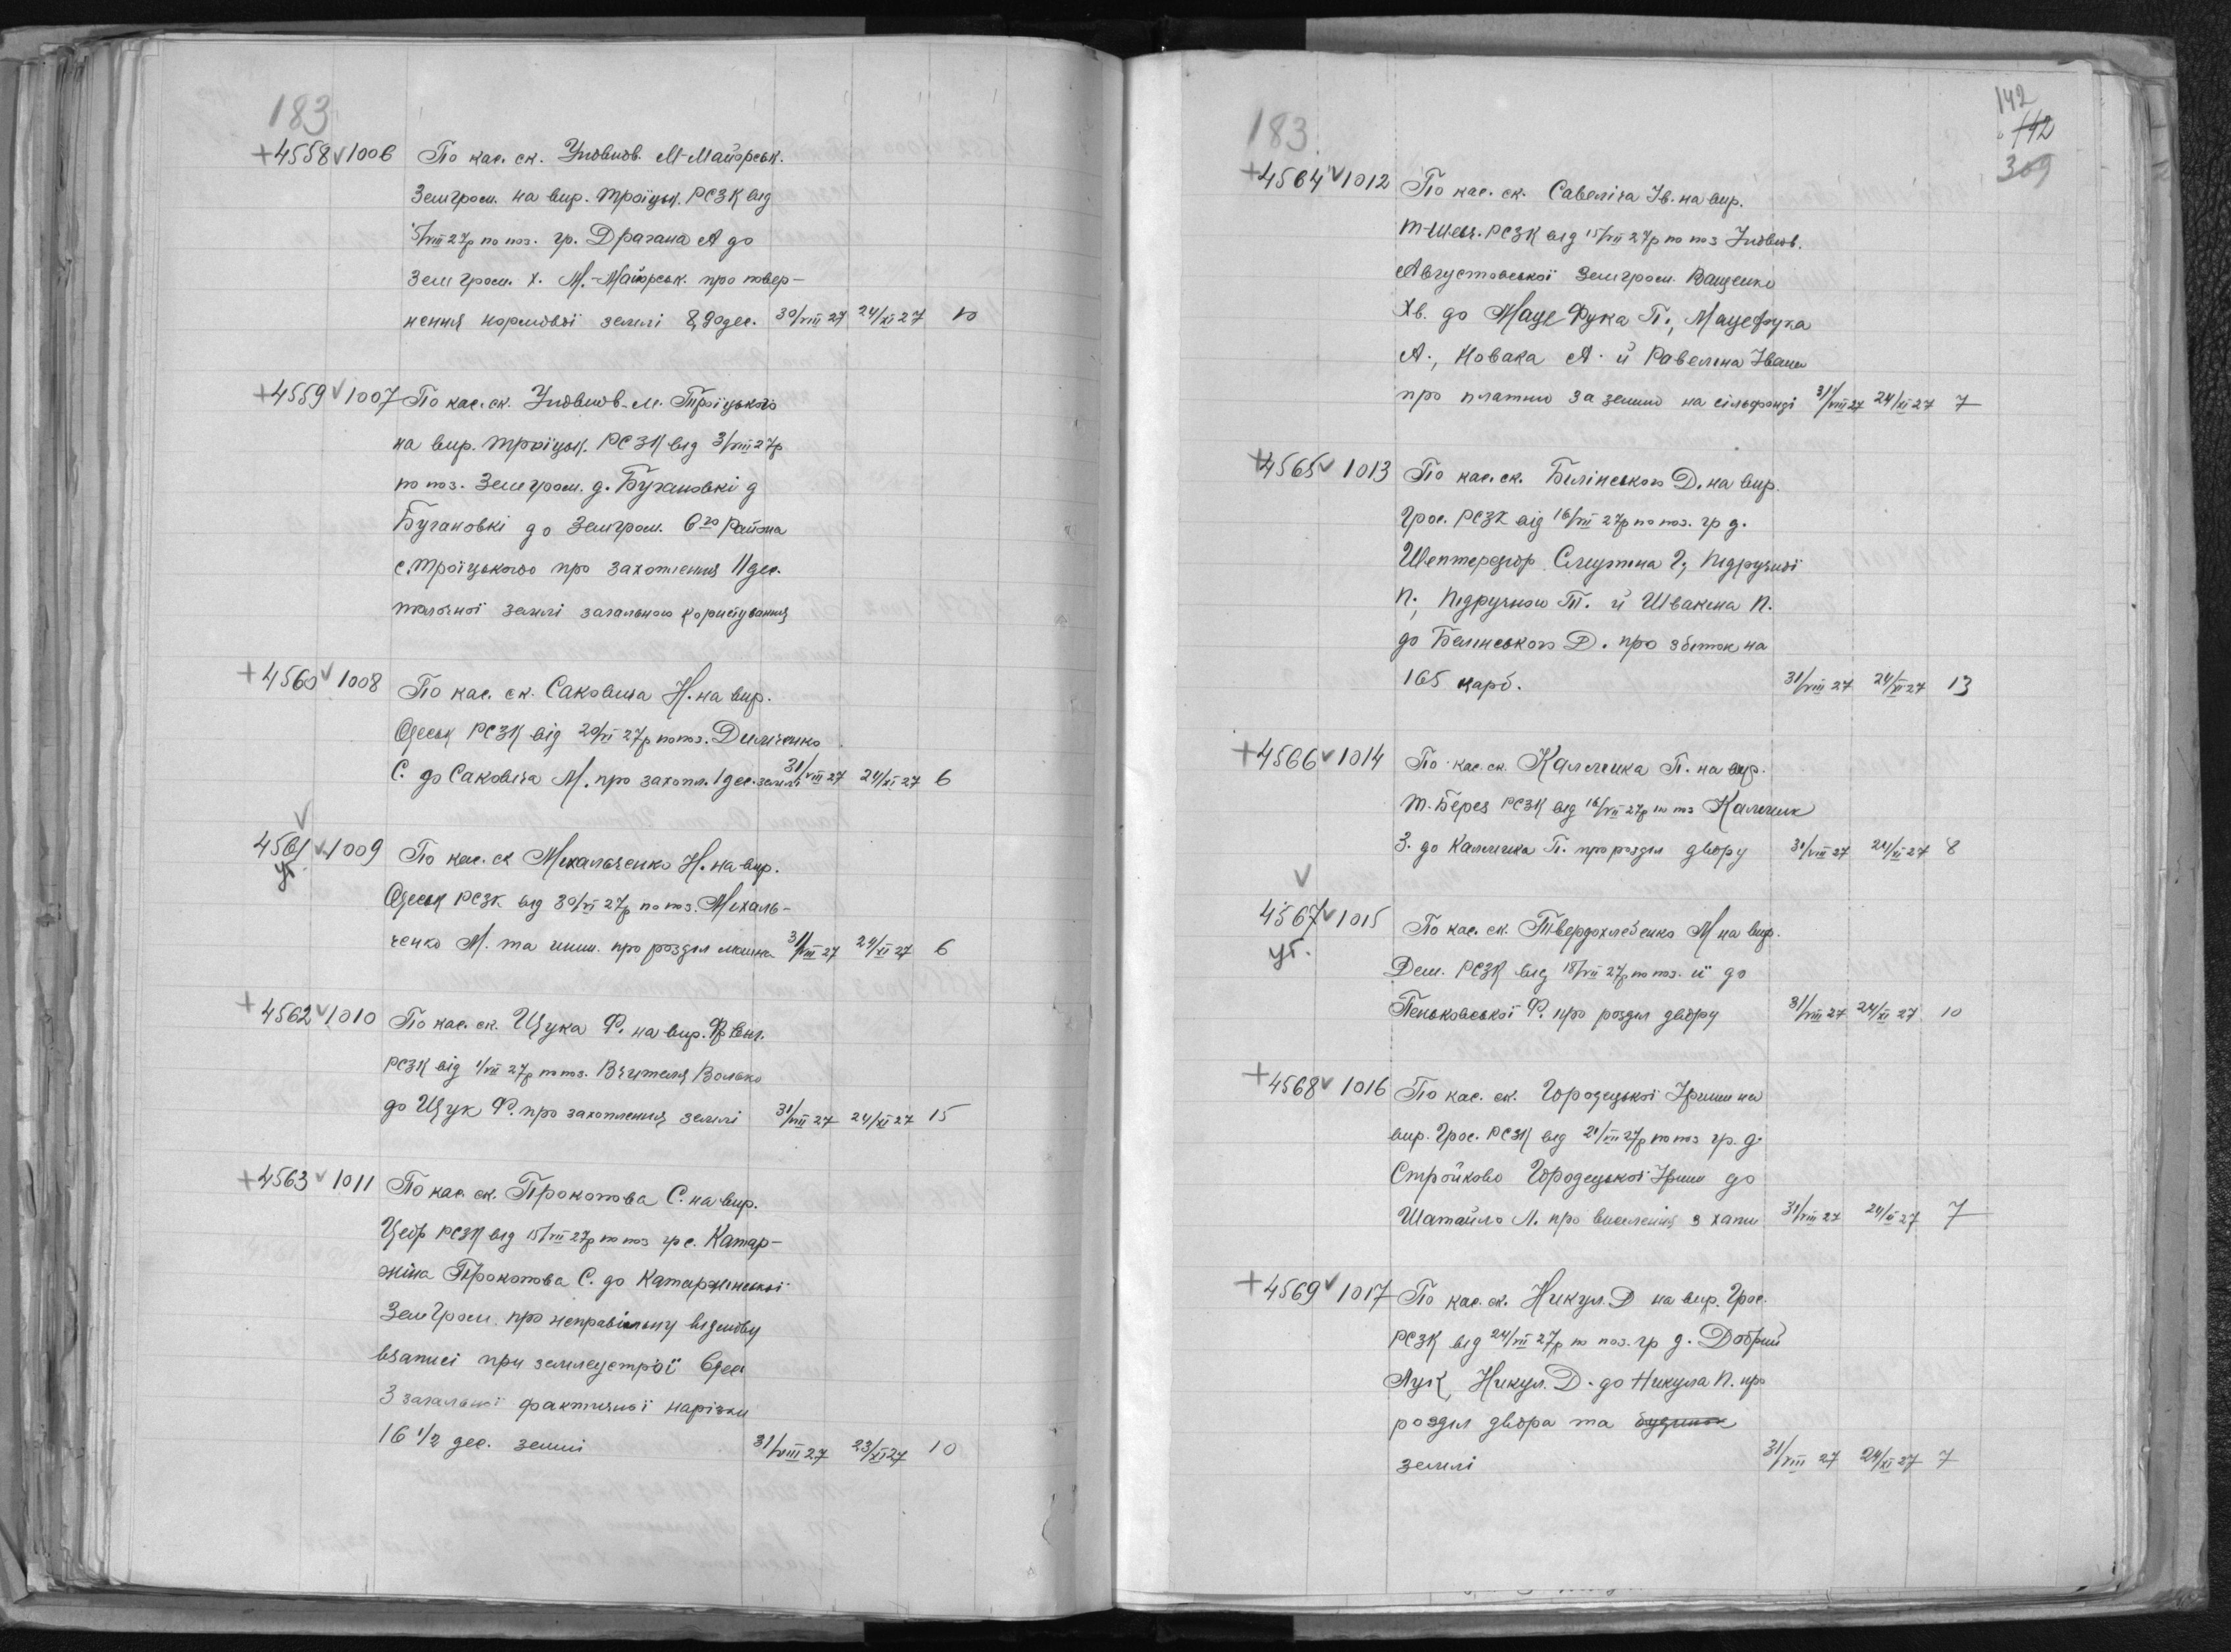 183
+4558 v 1006 По кас. ск. Уповнов. М-Майорськ.
Земгром. на вир. Троїцьк. РСЗК від
5/VIII 27р по поз. гр. Драгана А до
Зем гром. х. М.-Майорськ. про повер-
нення нормової землі 8,90 дес. 30/VIII 27 24/XI 27 10
+4559 v 1007 По кас. ск. Уповнов. м. Троїцького
на вир. Троїцьк. РСЗК від 3/VIII 27р
по поз. Земгром. д. Бугановкі д
Бугановкі до Земгром. 6го Района
с. Троїцького про захоплення 11 дес.
землі загального користування
+4560 v 1008 По кас. ск. Саковича Н. на вир.
Одеськ РСЗК від 20/VI 27р по поз. Димченко
С. до Саковіча М. про захопл. 1 дес. землі 31/VIII 27 24/XI 27 6
v
4561 v 1009 По кас. ск Михальченко Н. на вир.
Одеськ РСЗК від 30/VI 27р по поз. Михаль-
ченко М. та инш. про розділ майна 31/VIII 27 24/XI 27 6
+4562 v 1010 По кас. ск. Щука Ф. на вир.
РСЗК від 1/VII 27р по поз. Вчителя Волько
до Щук Ф. про захоплення землі 31/VIII 27 24/XI 27 15
+4563 v 1011 По кас ск. Прокопова С. на вир.
Цебр РСЗК від 15/VII 27р по поз гр с. Катар-
жина Прокопова С. до Катаржинської
Зем Гром. про неправільну відмову
взаписі при землеустрої 6 дес
З загальної фактичної нарізки
16 1/2 дес. землі 31/VIII 27 23/XI 27 10
183
142
142
309
+4564 v 1012 По кас. ск. Савеліча Ів. на вир.
Т-Шевч. РСЗК від 15/VII 27р по поз Уповнов.
Августовської Земгром. Ващенко
Хв. до Маце Фука П., Мацефука
А., Новака А. й Равеліна Івана
про платню за землю на сільфонді 31/VIII 27 24/XI 27 7
+4565 v 1013 По кас. ск. Билінського Д. на вир.
Грос. РСЗК від 16/VII 27р по поз. гр д.
Шептередор Слиутіна Г, Підручної
П., Підручного Т. й Швакіна П.
до Белінського Д. про збиток на
165 карб. 31/VIII 27 24/XI 27 13
+4566 v 1014 По кас. ск. Калчика П. на вир.
Т. Берез РСЗК від 16/VII 27р по поз Калчик
З. до Калчика П. про розділ двору 31/VIII 27 24/XI 27 8
v
4567 v 1015 По кас. ск. Твердохлебенко М на вир.
Дем. РСЗК від 18/VII 27р по поз. її до
Пеньковської Ф. про розділ двору 31/VIII 27 24/XI 27 10
+4568 v 1016 По кас. ск. Городецької Ірини на
вир. Грос. РСЗК від 21/VII 27р по поз гр. д.
Стройково Городецької Ірини до
Шатайло Л. про виселення з хати 31/VIII 27 24/XI 27 7
+4569 v 1017 По кас. ск. Никул. Д на вир. Грос.
РСЗК від 24/VII 27р по поз. гр д. Добрий
Лук, Никул. Д. до Никула П. про
розділ двора та будинок
землі 31/VIII 27 24/XI 27 7